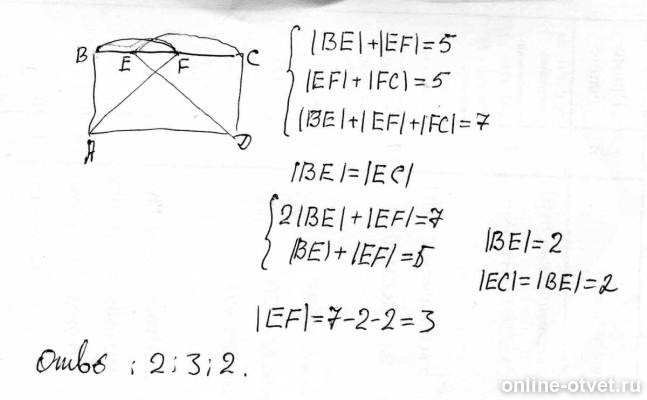 B E F C
A D
|BE|+|EF|=5
|EF|+|FC|=5
|BE|+|EF|+|FC|=7
|BE|=|EC|
2|BE|+|EF|=7
|BE|+|EF|=5
|BE|=2
|EC|=|BE|=2
|EF|=7-2-2=3
Ответ: 2; 3; 2.
online-otvet.ru